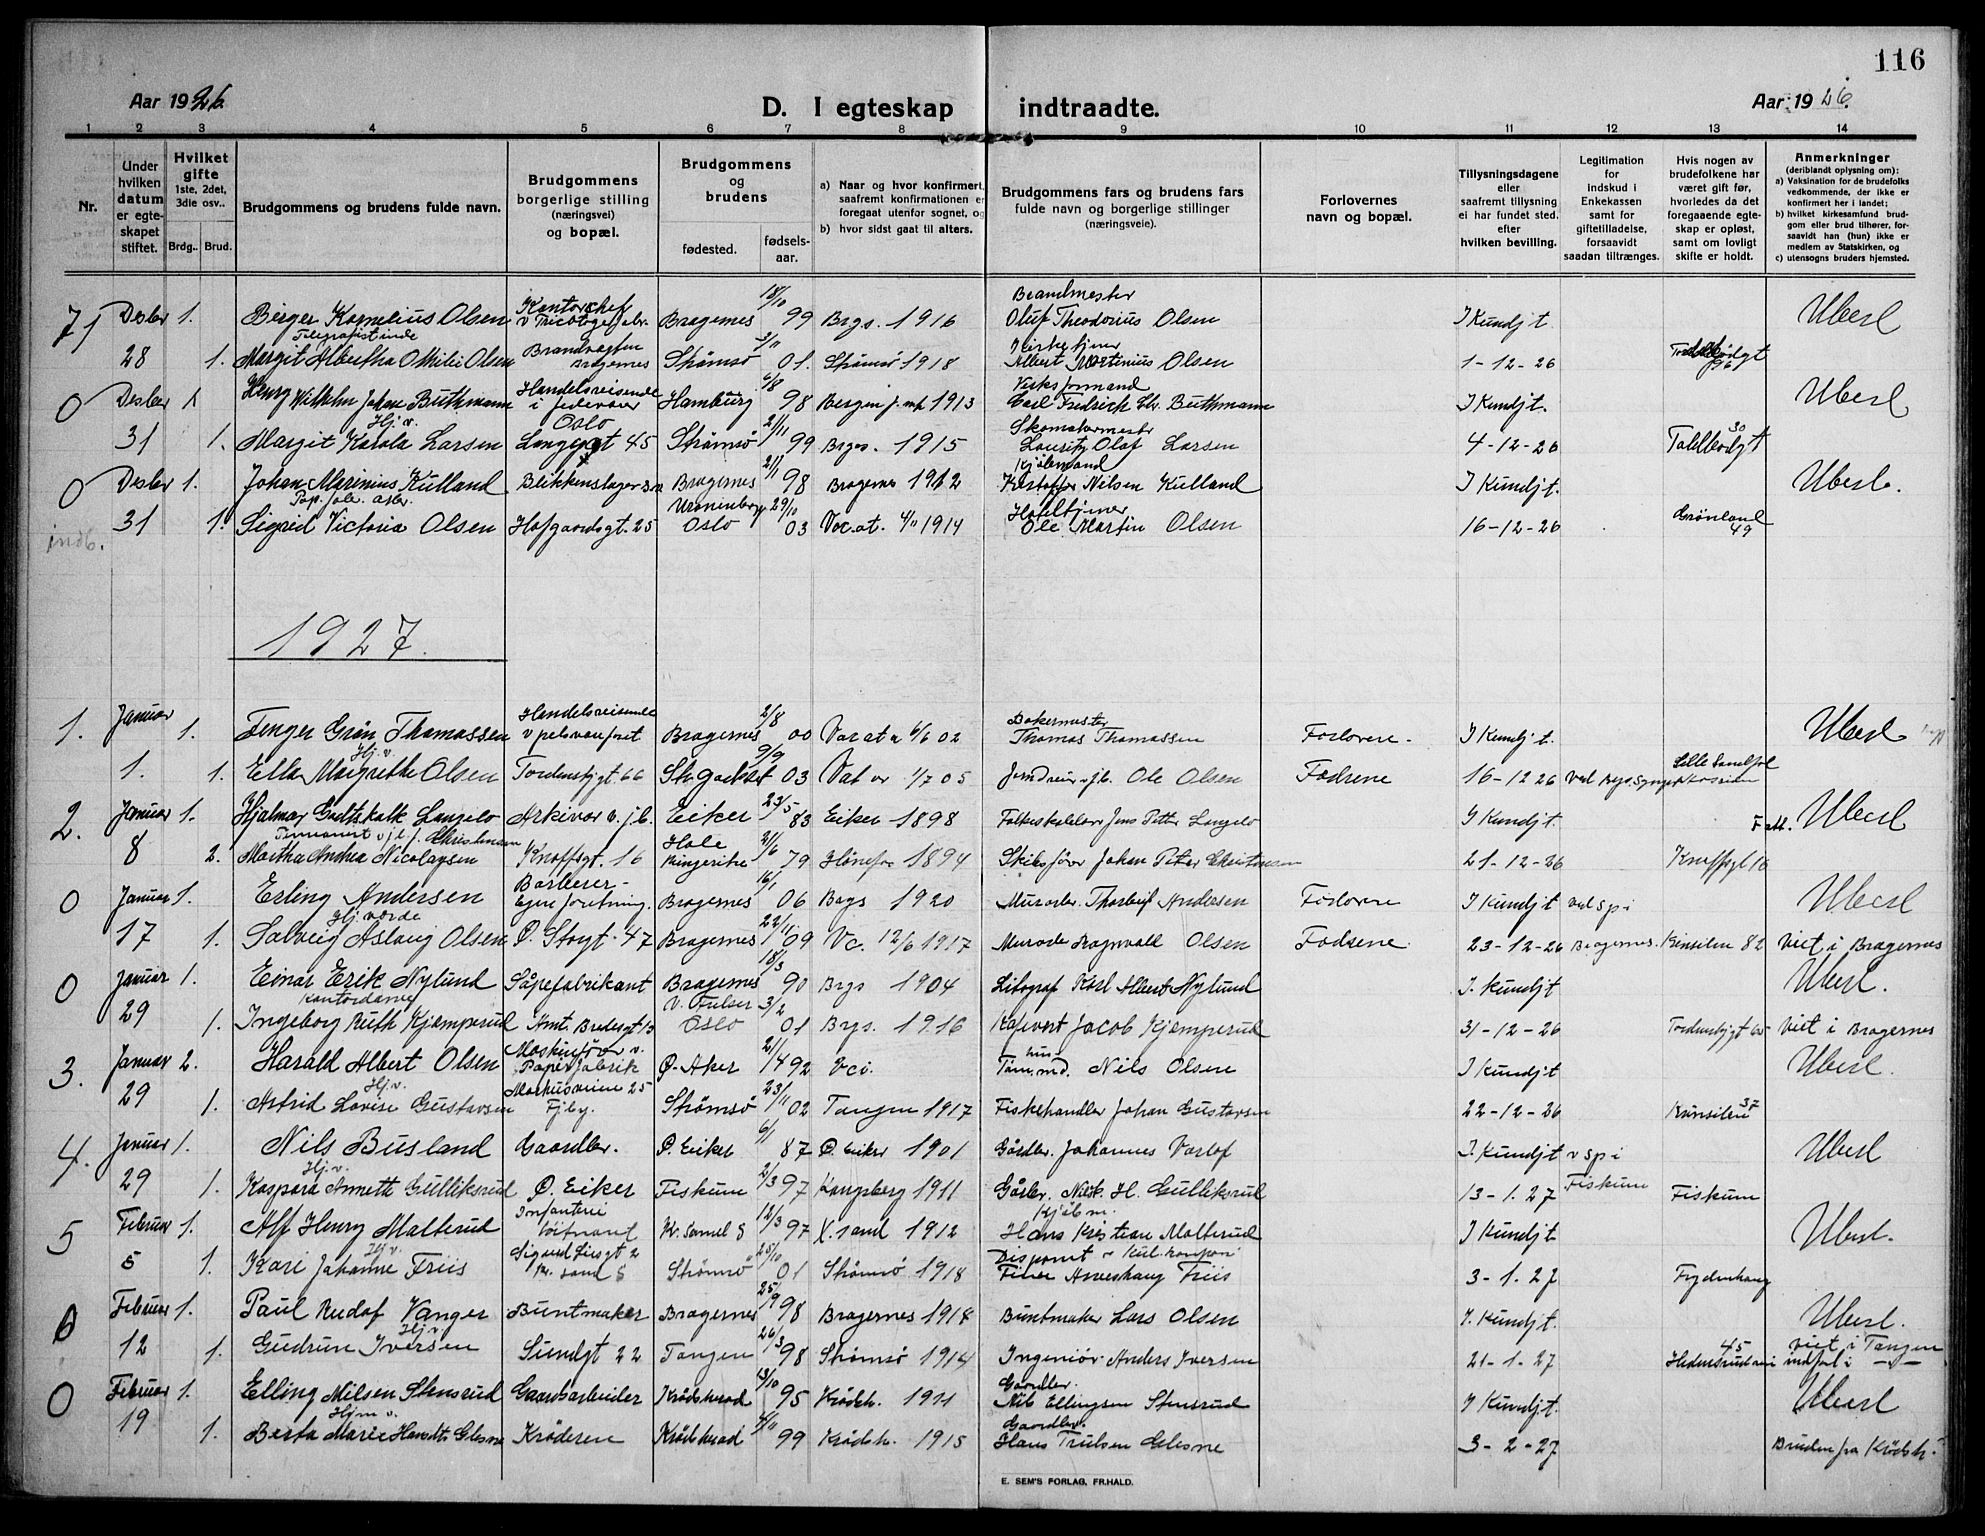 116
Aar 1926
D. I egteskap indtraadte.
Aar 1926.
1 2 3 4 5 6 7 8 9 10 11 12 13 14
Nr.
Under hvilken datum er egteskapet stiftet.
Hvilket gifte 1ste, 2det, 3die osv..
Brdg.. Brud.
Brudgommens og brudens fulde navn.
Brudgommens borgerlige stilling (næringsvei) og bopæl.
Brudgommens og brudens
fødested. fødselsaar.
a) Naar og hvor konfirmert, saafremt konfirmationen er foregaat utenfor sognet, og
b) hvor sidst gaat til alters.
Brudgommens fars og brudens fars fulde navn og borgerlige stillinger (næringsveie).
Forlovernes navn og bopæl.
Tillysningsdagene eller saafremt tillysning ei har fundet sted. efter hvilken bevilling.
Legitimation for indskud i Enkekassen samt for giftetilladelse, forsaavidt saadan tiltrænges.
Hvis nogen av brudefolkene har været gift før, hvorledes da det foregaaende egteskap er opløst, samt om lovligt skifte er holdt.
Anmerkninger (deriblandt oplysning om):
a) Vaksination for de brudefolks vedkommende, der ikke er konfirmert her i landet;
b) hvilket kirkesamfund brudgom eller brud tilhører, forsaavidt han (hun) ikke er medlem av Statskirken, og
c) utensogns bruders hjemsted.
Kontorchef 18/10 Brandmester
71 Desbr 1. Birger Kornelius Olsen v Tricotagefabr. Bragernes 99 Brgs. 1916 Oluf Theodorius Olsen I Kundjt Uberl
Telegrafistinde Brandvagten Kirketjener
28 1. Margit Albertha Othilie Olsen Bragernes Strømsø 01. Strømsø 1918 Albert Martinius Olsen 1-12-26
Handelsreisende 6/8 Verksformand
0 Desbr 1 Henry Wilhelm Johan Buthmann i jernvarer Hamburg 98 Bergen 1913 Carl Fredrich Chr. Buthmann I Kundjt. Uberl
Hj. v. Oslo 2/11 Skomakermester 30
31 1. Margit Karola Larsen Langgt 45 Strømsø 99 Brgs. 1915 Lauritz Olaf Larsen 4-12-26 Toldbodgt
21/1 Kjøbmand
0 Desbr 1. Johan Marinius Kulland Blikkenslager Bragernes 98 Bragernes 1912 Kristoffer Nilsen Kulland I Kundjt. Uberl.
Uranienborg 29/10 Hoteltjener Grønland
31 1. Sigrid Victoria Olsen Hofgaardsgt. 25 Oslo 03 Vac. at. 4/11 1914 Ole Martin Olsen 16-12-26 49
indb.
1927.
Januar Handelsreisende 2/8 Bakermester
1. 1. Fenger Grøn Thomassen v pelsvareforet Bragernes 00 Vac at a 6/6 02 Thomas Thomassen Forlovere. I Kundjt. Uberl
Hj. v. 9/9
1. 1. Ella Margrethe Olsen Tordenskjgt 66 03 1/7 05 Ole Olsen Fødrene 16-12 26
23/5
2. Januar 1. Hjalmar Godtskalk Langelo Arkivar v. j.b. Eiker 83 Eiker 1898 Jens Petter Langelo I Kundjt. Fatt. Uberl
Hole 21/6
8 2. Martha Andrea Nicolaysen Knoffsgt. 16 Ringerike 79 Hønefos 1894 Skibsfører Johan Peter Christensen 21-12-26 Knoffsgt 16
Barberer- 16/1
0 Januar 1. Erling Andersen Egen forretning. Bragernes 06 Brgs 1920 Murarbr. Thorleif Andersen Forlovere I Kundjt ved sp i Uberl
Hj. værde 22/11
17 1. Solveig Aslaug Olsen Ø. Storgt. 47 Bragernes 09 Vc. 12/6 1917 Ragnvald Olsen Fødrene 23-12-26 Bragernes. 82 Viet i Bragernes
18/3
0 Januar 1. Einar Erik Nylund Såpefabrikant Bragernes 90 Brgs 1904 Litograf Karl Albert Nylund I. Kundjt Uberl.
Kontordame 3/2
29 1. Ingeborg Ruth Kjemperud Amt. Bredesgt 13 Oslo 01 Brgs. 1916 Jacob Kjemperud 31-12-26 Viet i Bragernes
Maskinfører v.
3. Januar 2. Harald Albert Olsen Papirfabrik Ø. Aker 92 Nils Olsen I Kundjt Uberl.
Hj. v. 25 23/11
29 1. Astrid Lovise Gustavsen Fjby. Strømsø 02 Tangen 1917 Fiskehandler Johan Gustavsen 22-12-26 37
6/1
4. Januar 1. Nils Busland Gaardbr. Ø. Eiker 87 Ø. Eiker 1901 Gårdbr. Johannes I. Kundjt v sp i Uberl
Hj. v. 2/3
29 1. Kaspara Annette Gulliksrud Ø. Eiker Fiskum 97 Kongsberg 1911 Gårbr. H. Gulliksrud 13-1. 27 Fiskum Fiskum
Infanteri 12/3 Kjøbm.
5 Februar 1. Alf Henry Malterud løitnant Kr. Sand S 97 X. sand 1912 Hans Kristian Malterud I Kundjt Uberl.
Hj. v. 25/10
5 1. Kari Johanne Friis Kr. sand S Strømsø 01 Strømsø 1918 Friis 3-1. 27 Frydenhaug
25/9
0 Februar 1. Paul Rudolf Vanger Buntmaker Bragernes 98 Bragernes 1914 Buntmaker Lars Olsen I. Kundjt. Uberl.
Hj v 26/3 45 Viet i Tangen
12 1. Gudrun Iversen Sundgt 22 Tangen 98 Strømsø 1914 Ingeniør Anders Iversen 21-1-27 indført i —"—
13/10 Gaardbr.
0 Februar 1. Elling Nilsen Stensrud Gaardsarbeider Krødsherad 95 Krødsh. 1911 Nils Ellingsen Stensrud I Kundjt. Uberl
Hjm v. Gaardbr.
19 1. Berta Marie Hansdtr. Glesne Krøderen Krødsherad 99 Krødsh. 1915 Hans Trulsen Glesne 3-2-27 Bruden fra Krødsh.
E. SEM'S FORLAG, FR.HALD.